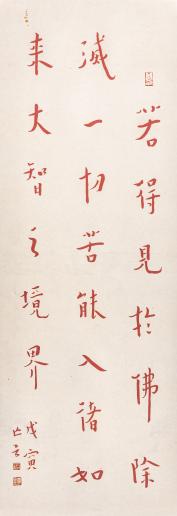 若得見於佛除
滅一切苦能入諸如
来大智之境界
戊寅